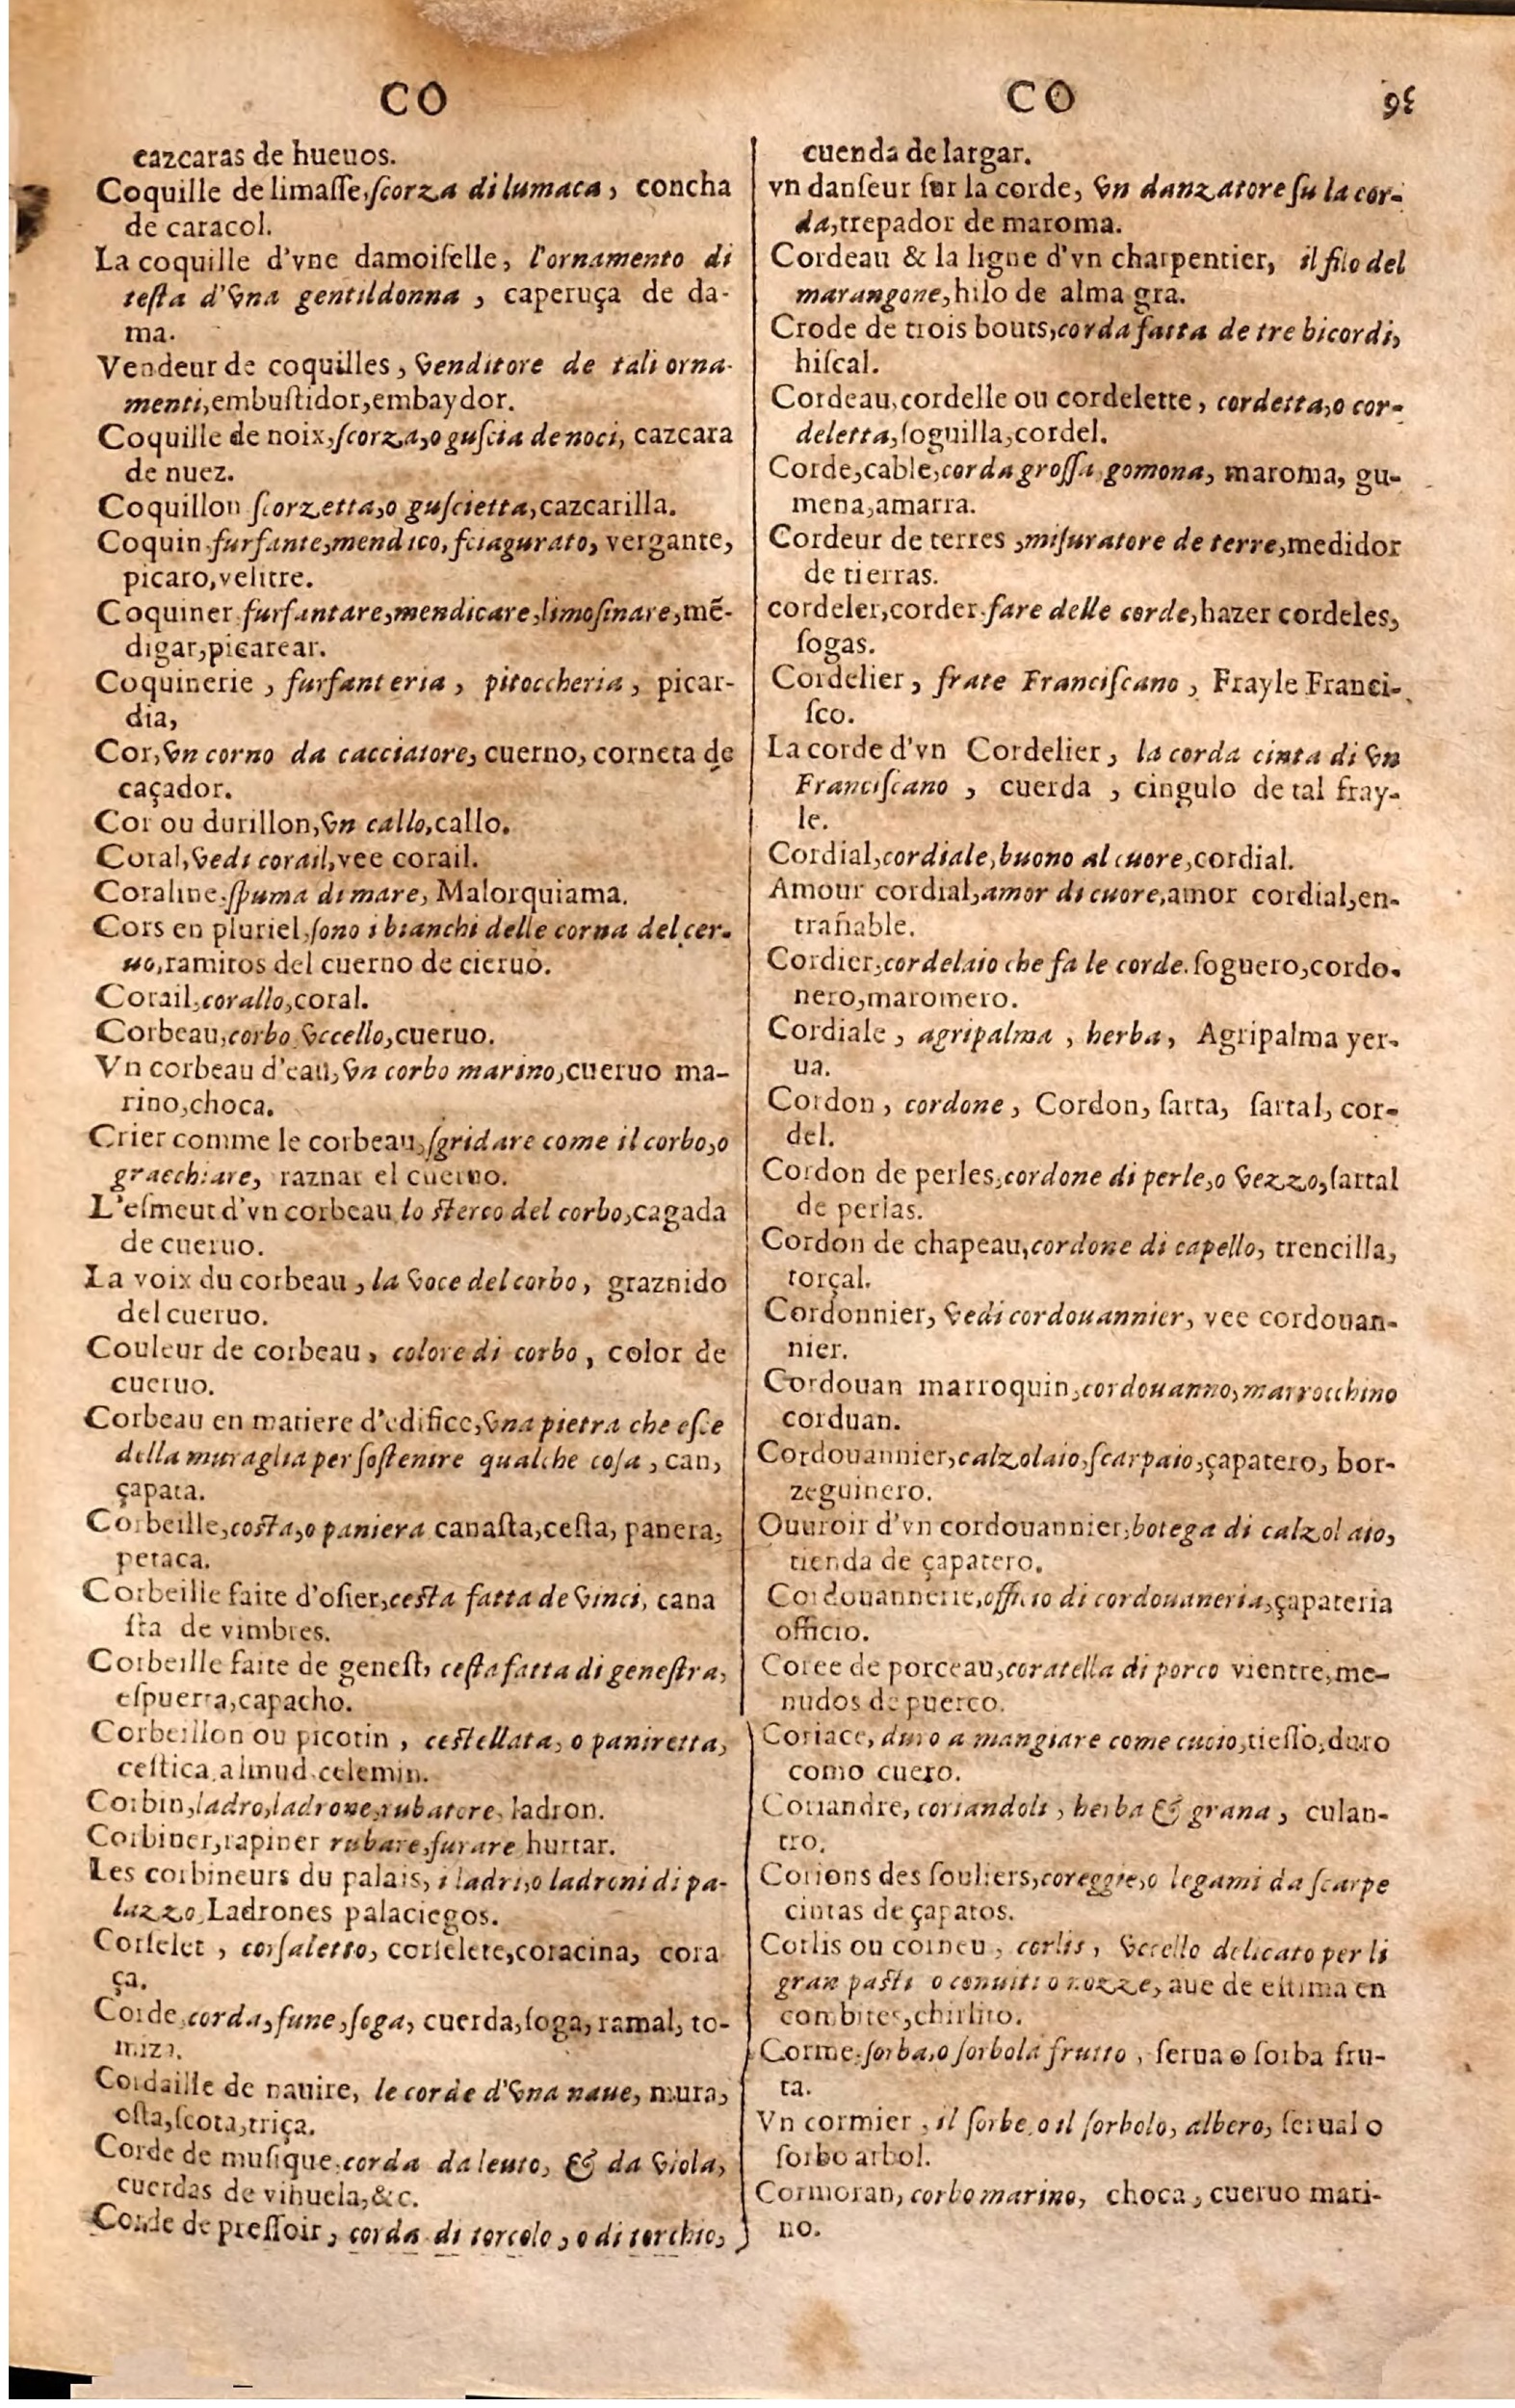 CO
cazcaras de hueuos.
Coquille de limaſſe, ſcorza di lumaca, concha
de caracol.
La coquille d'vne damoiſelle, l'ornamento di
teſta d'vna gentildonna, caperuça de da-
ma.
Vendeur de coquilles, venditore de tali orna-
menti, embuſtidor, embaydor.
Coquille de noix, ſcorza, o guſcia de noci, cazcara
de nuez.
Coquillon ſcorzetta, o guſcietta, cazcarilla.
Coquin furfante, mendico, ſciagurato, vergante,
picaro, velitre.
Coquiner furfantare, mendicare, limoſinare, mẽ-
digar, picarear.
Coquinerie, furfanteria, pitoccheria, picar-
dia,
Cor, vn corno da cacciatore, cuerno, corneta de
caçador.
Cor ou durillon, vn callo, callo.
Coral, vedi corail, vee corail.
Coraline ſpuma di mare, Malorquiama.
Cors en pluriel, ſono i bianchi delle corna del cer-
uo, ramitos del cuerno de cieruo.
Corail, corallo, coral.
Corbeau, corbo vccello, cueruo.
Vn corbeau d'eau, vn corbo marino, cueruo ma-
rino, choca.
Crier comme le corbeau, ſgridare come il corbo, o
gracchiare, raznar el cueruo.
L'eſmeut d'vn corbeau lo ſterco del corbo, cagada
de cueruo.
La voix du corbeau, la voce del corbo, graznido
del cueruo.
Couleur de corbeau, colore di corbo, color de
cueruo.
Corbeau en matiere d'edifice, vna pietra che eſce
della muraglia per ſoſtenire qualche coſa, can,
çapata.
Corbeille, coſta, o paniera canaſta, ceſta, panera,
petaca.
Corbeille faite d'oſier, ceſta fatta de vinci, cana
ſta de vimbres.
Corbeille faite de geneſt, ceſta fatta di geneſtra,
eſpuerta, capacho.
Corbeillon ou picotin, ceſtellata, o paniretta,
ceſtica, almud celemin.
Corbin, ladro, ladrone, rubatore, ladron.
Corbiner, rapiner rubare, furare hurtar.
Les corbineurs du palais, i ladri, o ladroni di pa-
lazzo, Ladrones palaciegos.
Corſelet, corſaletto, corſelete, coracina, cora
ça.
Corde, corda, fune, ſoga, cuerda, ſoga, ramal, to-
miza.
Cordaille de nauire, le corde d'vna naue, mura,
oſta, ſcota, triça.
Corde de muſique, corda da leuto, & da viola,
cuerdas de vihuela, &c.
Corde de preſſoir, corda di torcolo, o di torchio,
CO 95
cuenda de largar.
vn danſeur ſur la corde, vn danzatore ſu la cor-
da, trepador de maroma.
Cordeau & la ligne d'vn charpentier, il filo del
marangone, hilo de alma gra.
Crode de trois bouts, corda fatta de tre bicordi,
hiſcal.
Cordeau, cordelle ou cordelette, cordetta, o cor-
deletta, ſoguilla, cordel.
Corde, cable, corda groſſa gomona, maroma, gu-
mena, amarra.
Cordeur de terres, miſuratore de terre, medidor
de tierras.
cordeler, corder fare delle corde, hazer cordeles,
ſogas.
Cordelier, frate Franciſcano, Frayle Franci-
ſco.
La corde d'vn Cordelier, la corda cinta di vn
Franciſcano, cuerda, cingulo de tal fray-
le.
Cordial, cordiale, buono al cuore, cordial.
Amour cordial, amor di cuore, amor cordial, en-
trañable.
Cordier, cordelaio che fa le corde. ſoguero, cordo-
nero, maromero.
Cordiale, agripalma, herba, Agripalma yer-
ua.
Cordon, cordone, Cordon, ſarta, ſartal, cor-
del.
Cordon de perles, cordone di perle, o vezzo, ſartal
de perlas.
Cordon de chapeau, cordone di capello, trencilla,
torçal.
Cordonnier, vedi cordouannier, vee cordouan-
nier.
Cordouan marroquin, cordouanno, marrocchino
corduan.
Cordouannier, calzolaio, ſcarpaio, çapatero, bor-
zeguinero.
Ouuroir d'vn cordouannier, botega di calzolaio,
tienda de çapatero.
Cordouannerie, officio di cordouaneria, çapateria
officio.
Coree de porceau, coratella di porco vientre, me-
nudos de puerco.
Coriace, duro a mangiare come cuoio, tieſſo, duro
como cuero.
Coriandre, coriandoli, herba & grana, culan-
tro.
Corions des ſouliers, coreggie, o legami da ſcarpe
cintas de çapatos.
Corlis ou corneu, corlis, vccello delicato per li
gran paſti o conuiti o nozze, aue de eſtima en
combites, chirlito.
Corme, ſorba, o ſorbola frutto, ſerua o ſorba fru-
ta.
Vn cormier, il ſorbe, o il ſorbolo, albero, ſerual o
ſorbo arbol.
Cormoran, corbo marino, choca, cueruo mari-
no.